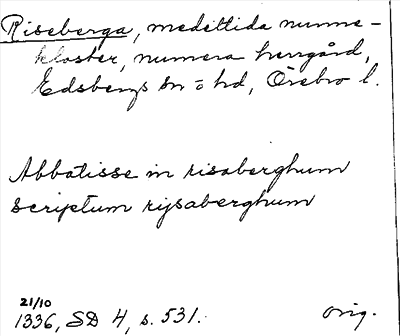 Riseberga, medeltida nunne-
kloster, numera herrgård,
Edsbergs sn o hd, Örebro l.
Abbatisse in risaberghum
scriptum rijsaberghum
21/10
1336, SD 4, s. 531.
orig.